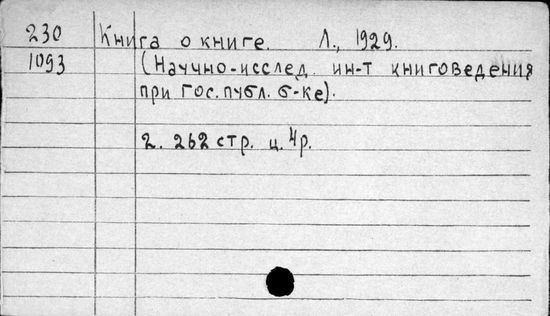 230 Книга о книге. Л., 1929.
1093 (Научно-исслед. ин-т книговедения
при Гос. публ. б-ке).
2. 262 стр. ц. 4р.